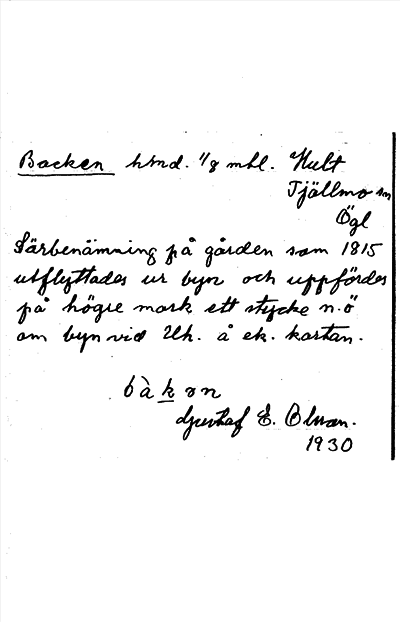 Backen hmd. 1/8 mtl. Hult
Tjällmo sn
Ögl
Särbenämning på gården som 1815
utflyttades ur byn och uppfördes
på högre mark ett stycke n.ö
om byn vid Uh. å ek. kartan.
bàkən
Gustaf E. Olsson.
1930